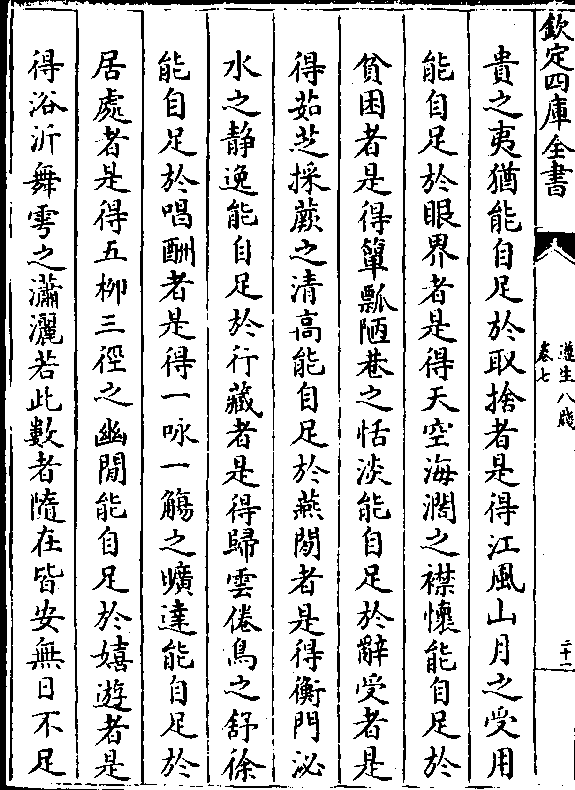 欽定四庫全書
遵生八牋
卷七
二十一
貴之夷猶能自足於取捨者是得江風山月之受用
能自足於眼界者是得天空海濶之襟懷能自足於
貧困者是得簞瓢陋巷之恬淡能自足於辭受者是
得茹芝採蕨之清高能自足於燕閒者是得衡門泌
水之静逸能自足於行藏者是得歸雲倦鳥之舒徐
能自足於唱酬者是得一咏一觴之曠達能自足於
居處者是得五柳三徑之幽閒能自足於嬉遊者是
得浴沂舞雩之瀟灑若此數者隨在皆安無日不足